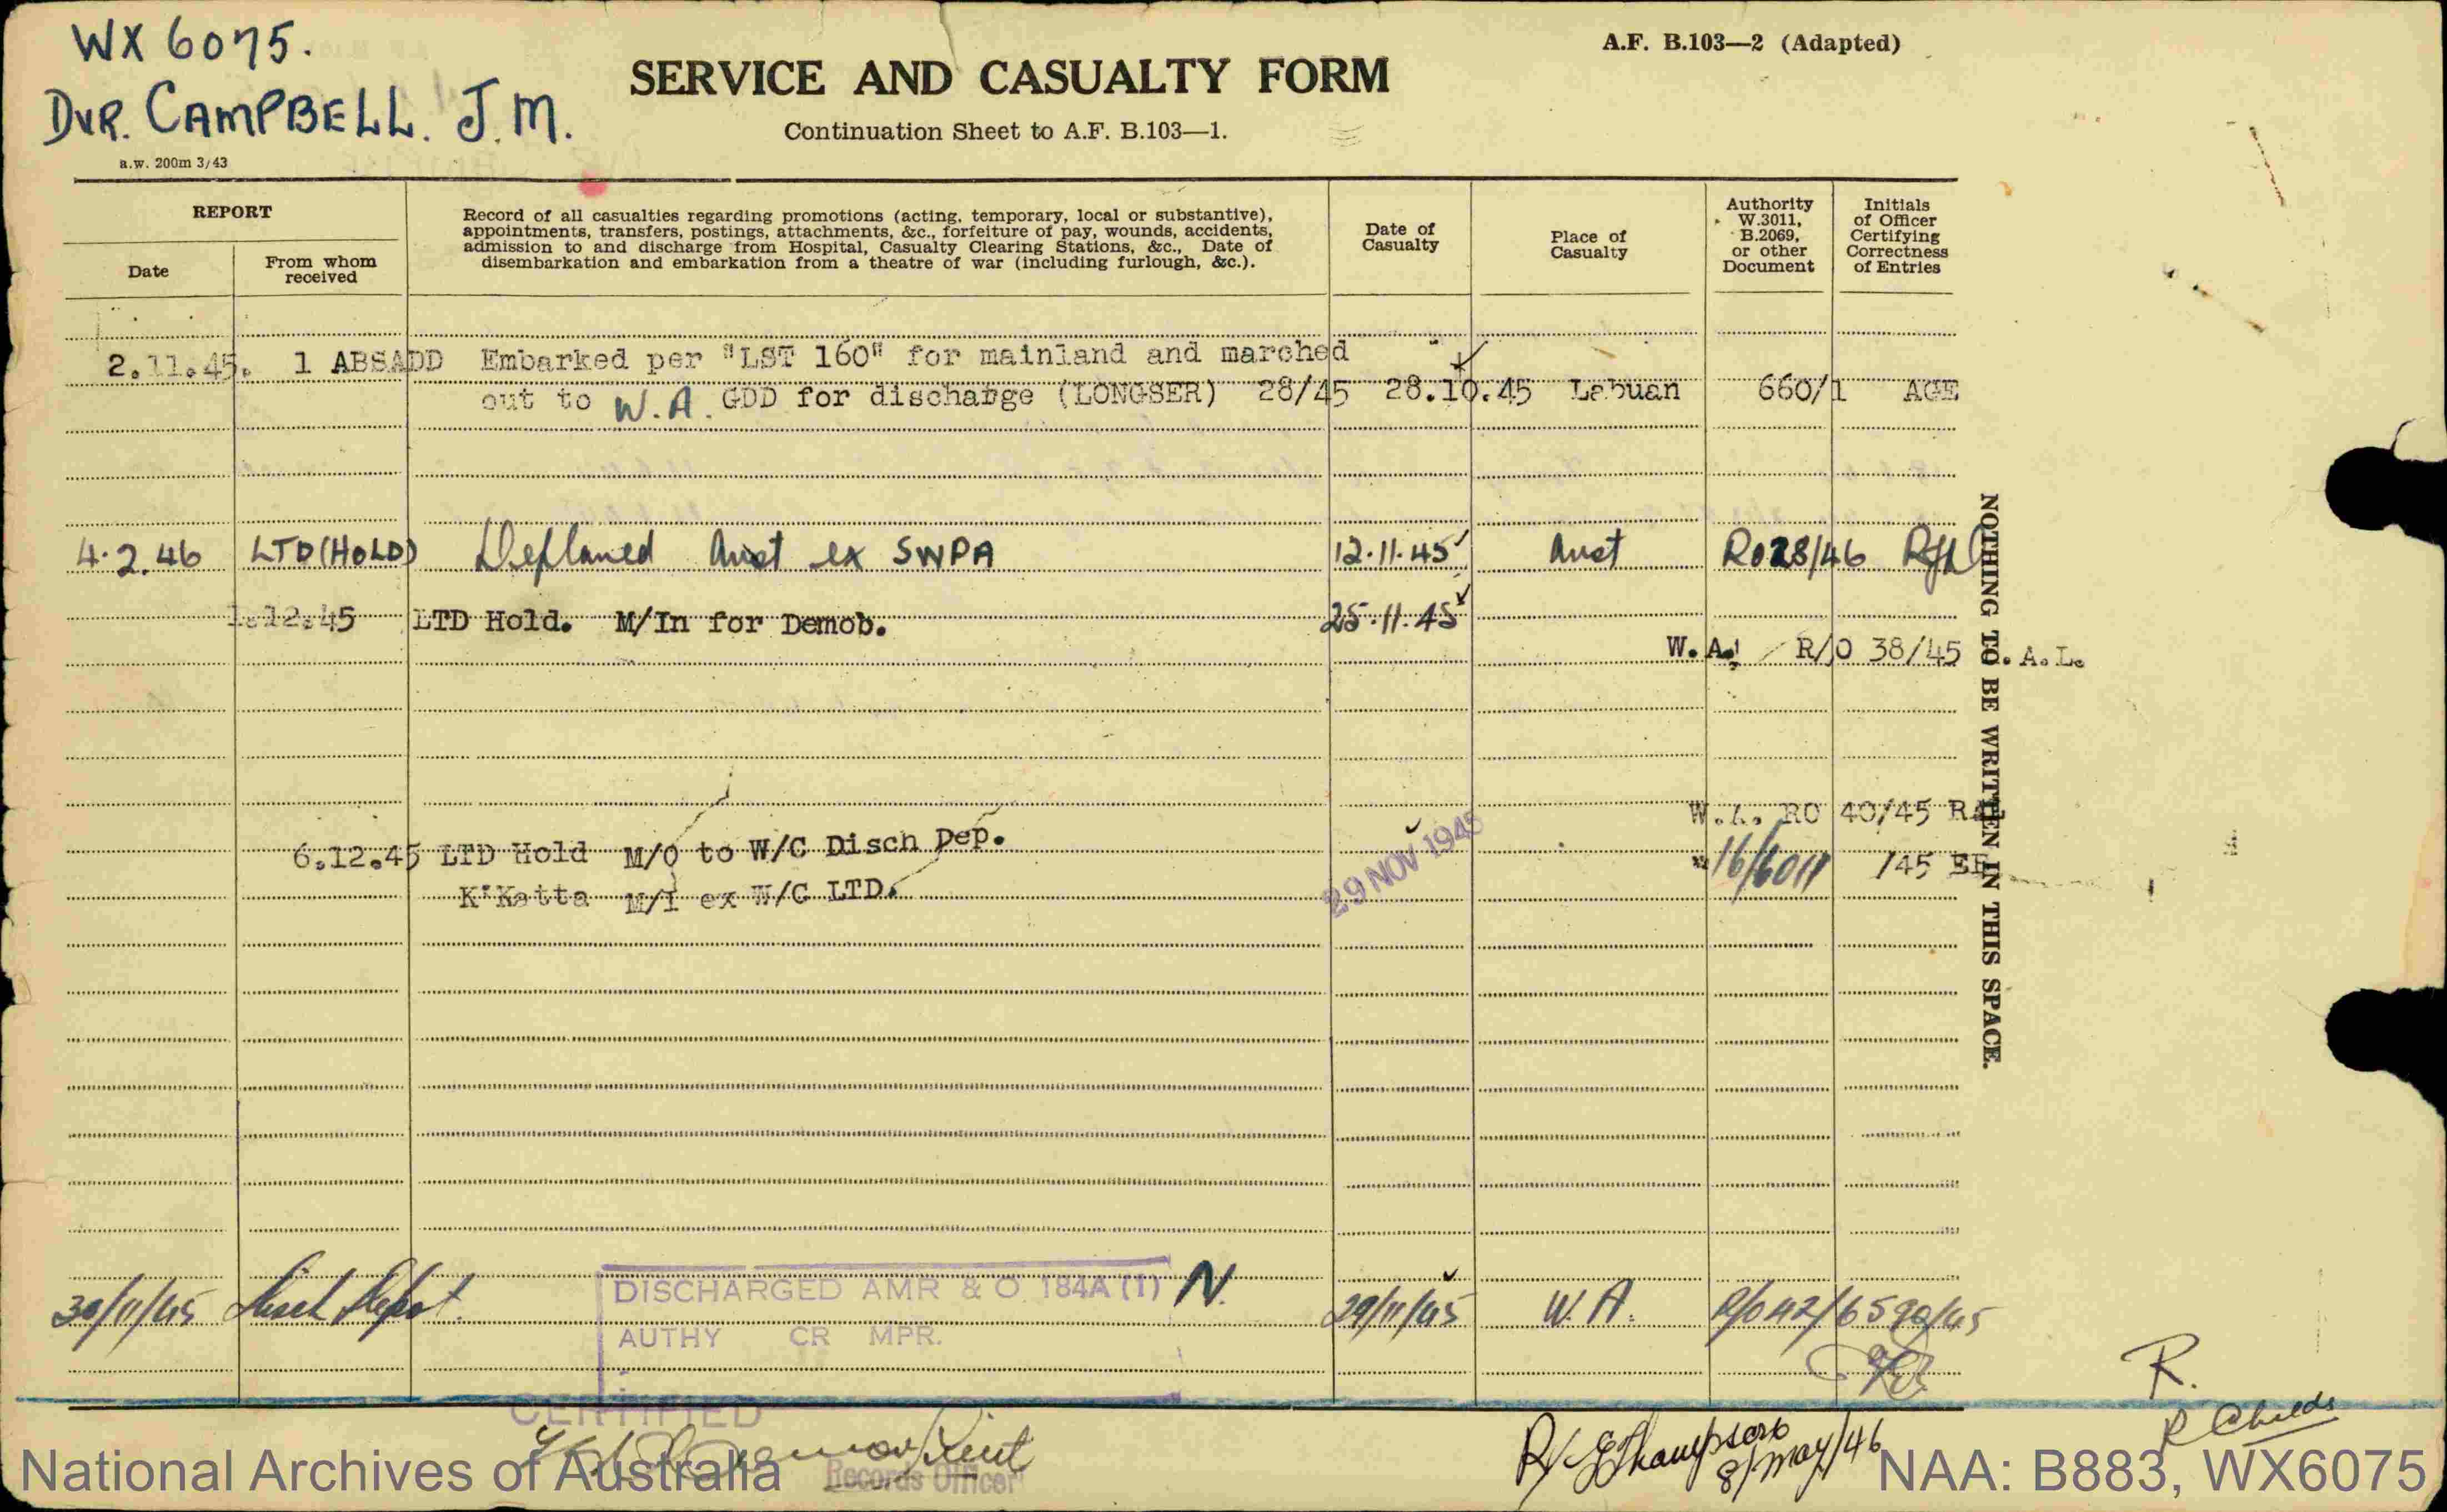 WX 6075.
DVR. CAMPBELL. J.M.
a.w. 200m 3/43
SERVICE AND CASUALTY FORM
Continuation Sheet to A.F. B.103—1.
A.F. B.103—2 (Adapted)
REPORT
Date
From whom received
Record of all casualties regarding promotions (acting, temporary, local or substantive),
appointments, transfers, postings, attachments, &c., forfeiture of pay, wounds, accidents,
admission to and discharge from Hospital, Casualty Clearing Stations, &c., Date of
disembarkation and embarkation from a theatre of war (including furlough, &c.).
Date of Casualty
Place of Casualty
Authority W.3011, B.2069, or other Document
Initials of Officer Certifying Correctness of Entries
2.11.45. 1 ABSADD Embarked per "LST 160" for mainland and marched
out to W.A. GDD for discharge (LONGSER) 28/45 28.10.45 Labuan 660/1 AGE
4.2.46 LTD(HOLD) Deplaned Aust ex SWPA 12.11.45 Aust RO28/46
1.12.45 LTD Hold. M/In for Demob. 25.11.45
W.A. R/O 38/45 . A.L.
W.A. RO 40/45
6.12.45 LTD Hold M/O to W/C Disch Dep.
K'Katta M/I ex W/C LTD.
29 NOV 1945
16/6011 /45
NOTHING TO BE WRITTEN IN THIS SPACE.
30/11/45 Disch Depot. DISCHARGED AMR & O 184A (1) N. 29/11/45 W.A. R/O 42/6590/45
AUTHY CR MPR.
CERTIFIED
Lieut
Records Officer
Thompson
8/May/46
R.
R Childs
National Archives of Australia
NAA: B883, WX6075